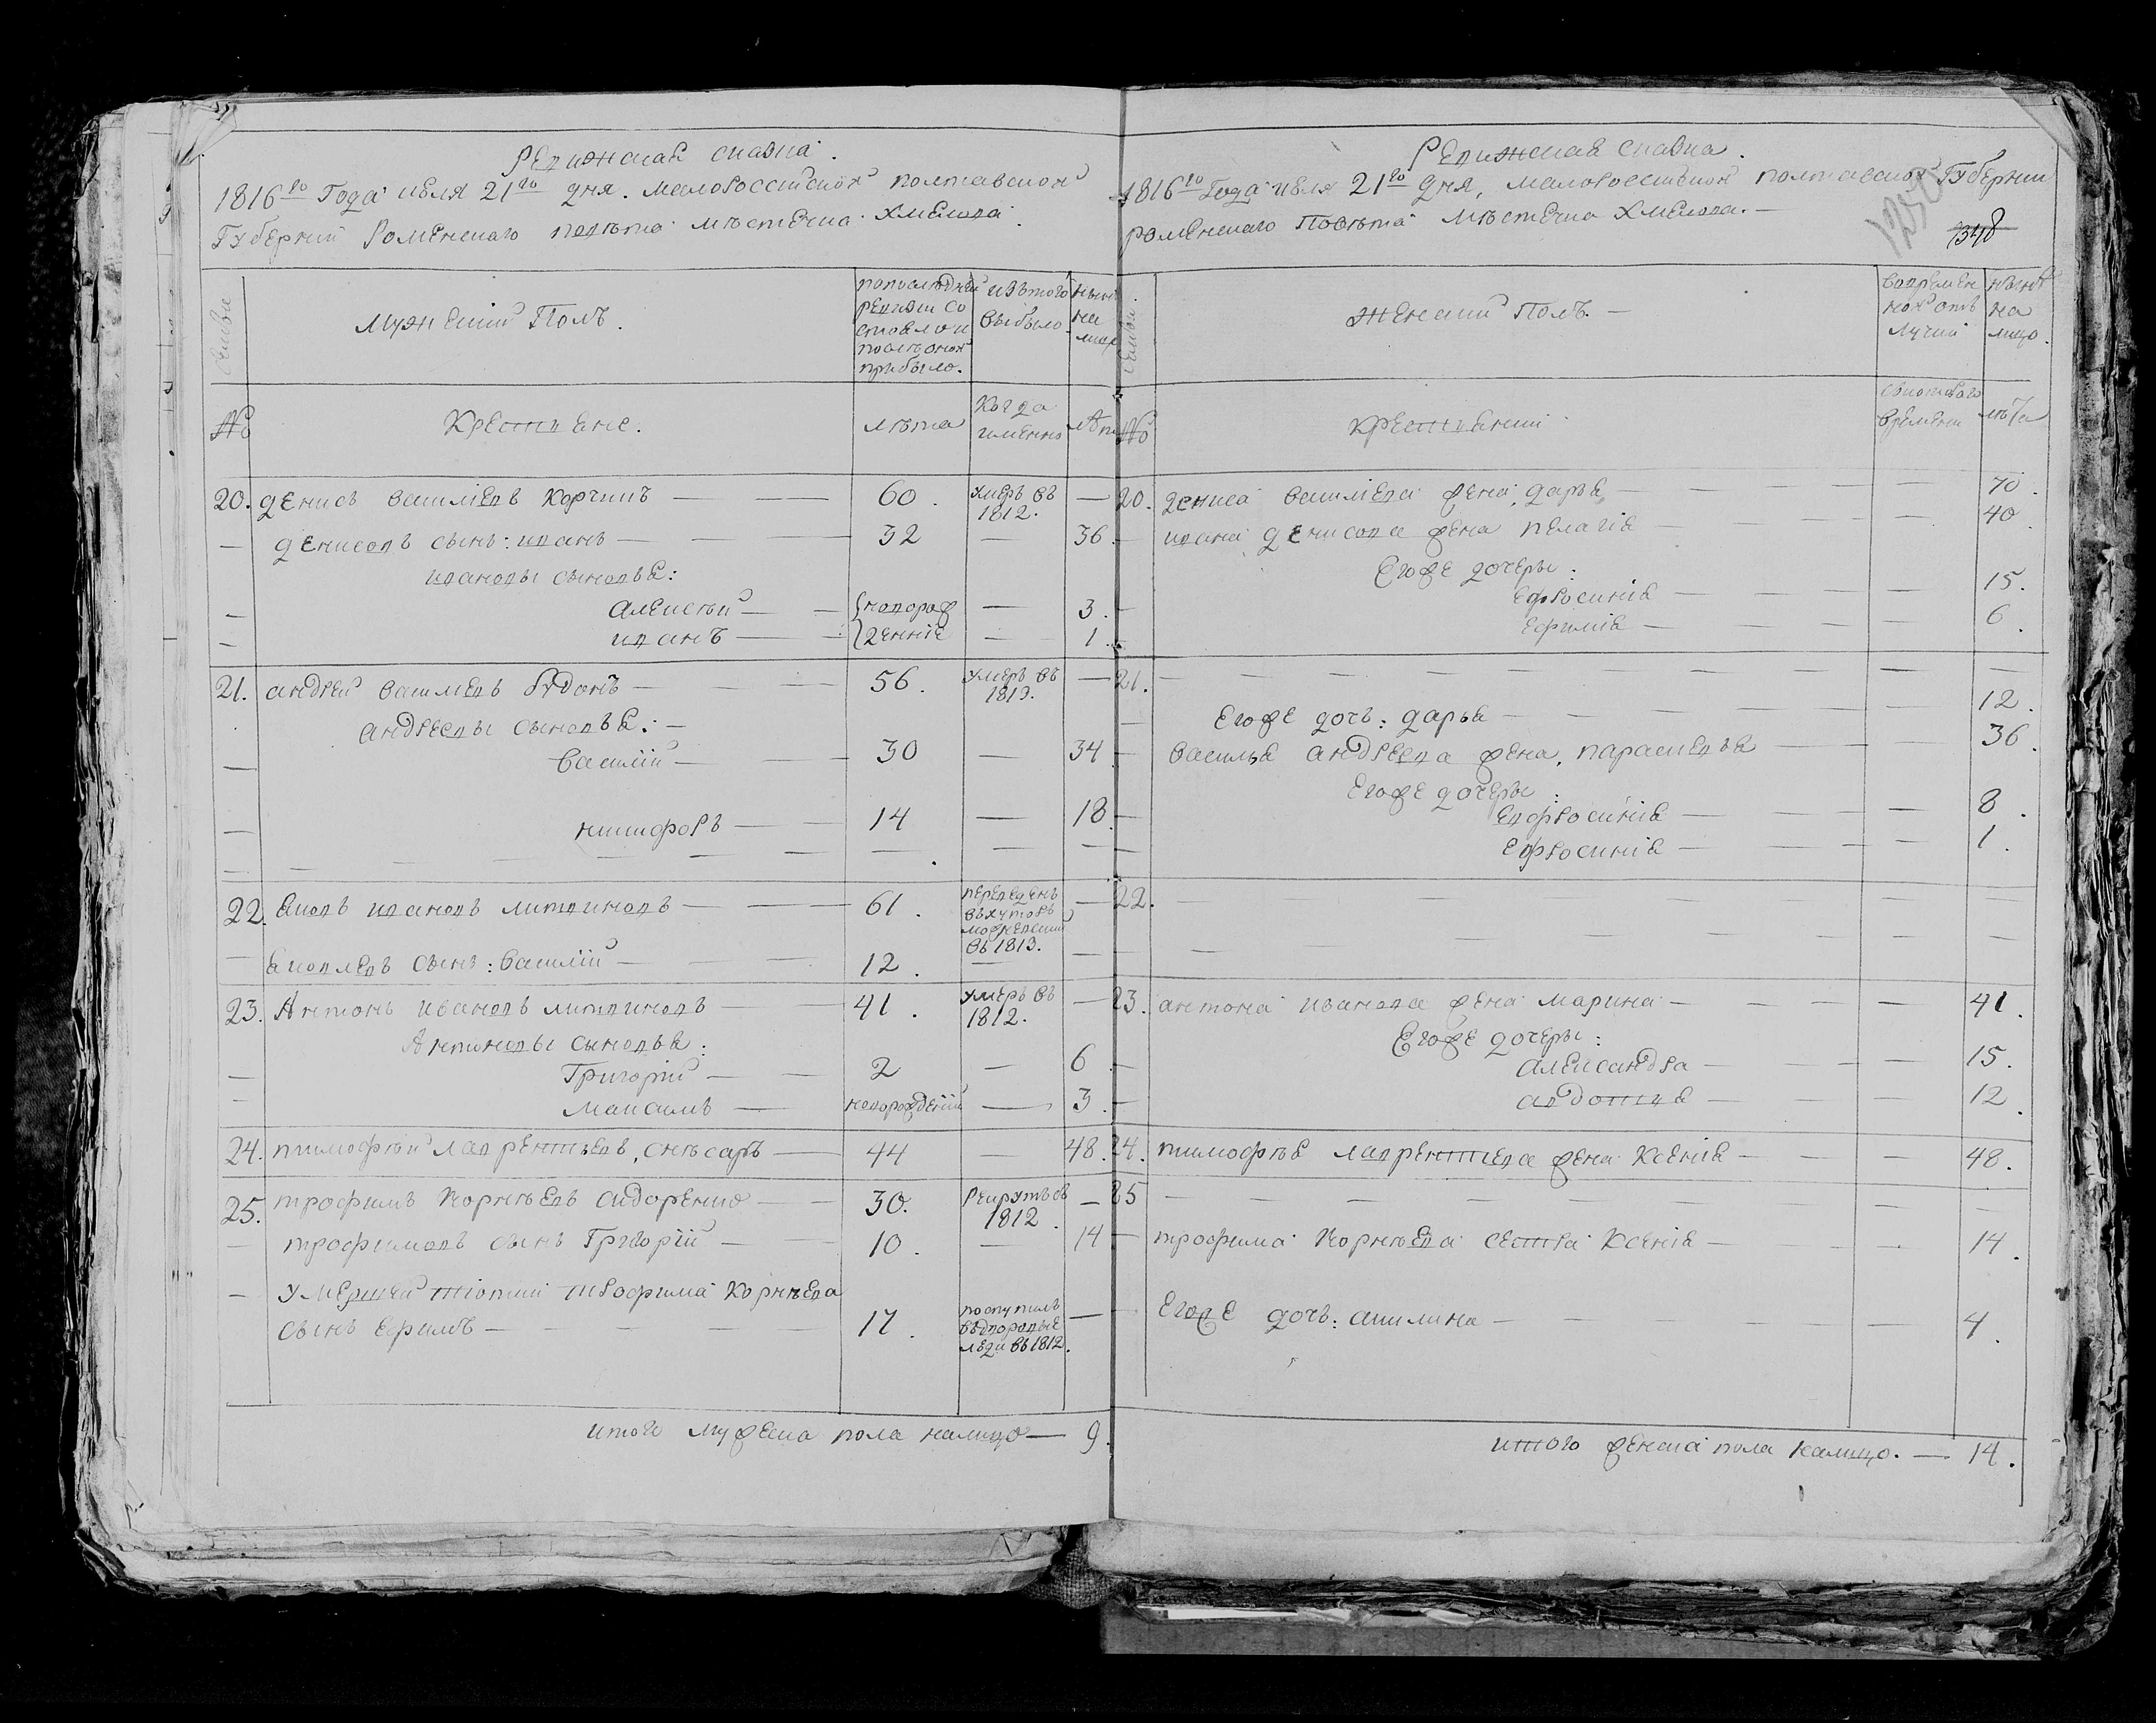 Ревижская сказка.
1816го Года июля 21го дня. малороссійской полтавской
Губерніи Роменскаго повѣта мѣстечка Хмелова
Семьи
Мужеский Полъ.
попоследней ревизіи состояло и после оной прибыло.
изътого выбыло
нынѣ на лицо
№
Крестьяне.
лѣта
Когда именно
лѣта
20. денисъ васильевъ Корчикъ — 60. умеръ въ 1812. —
— денисовъ сынъ: иванъ — 32 — 36
ивановы сыновья:
— Алексѣй — новорож — 3.
— иванъ — денніе — 1.
21. андрей васильевъ Рудонъ — 56. умеръ въ 1813. —
андреевы сыновья: —
— василій — 30 — 34
— никифоръ — 14 — 18
22. Яковъ ивановъ литвиновъ — 61. переведенъ въхуторъ въ 1813. —
— Яковлевъ сынъ: василій — 12. — —
23. Антонъ ивановъ литвиновъ — 41. умеръ въ 1812. —
Антоновы сыновья:
— Григорій — 2 — 6
— максимъ — новорожденій — 3.
24. тимофѣй лаврентьевъ, снѣсаръ — 44 — 48.
25. трофимъ Корнѣевъ сидоренко — 30. Рекрутъ въ 1812. —
— трофимовъ сынъ Григорій — 10. — 14
— умершей тіотки трофима Корнѣева
сынъ ефимъ — 17. поступилъ въдворовые люди въ 1812. —
итого мужеска пола налицо — 9.
Ревижская сказка.
1816го Года июля 21го дня, малороссійской полтавской Губерніи
роменскаго Повѣта мѣстечка Хмелова. —
1348
Семьи
Женский Полъ. —
вовременной отлучки
нынѣ на лицо.
№
Крестьянки
скотораго времени
лѣта
20. дениса васильева жена, дарья — 70.
— ивана денисова жена пелагія — 40.
Егоже дочеры:
ефросинія — 15.
ефимія — 6.
21. — — —
— Егоже дочь: дарья — 12.
— василья андреева жена, парасковья — 36.
Егоже дочеры:
— евфросинія — 8.
— ефросинія — 1.
22. — — —
23. антона иванова жена марина — 41.
Егоже дочеры:
— александра — 15.
— авдотия — 12.
24. тимофѣя лаврентиева жена Ксенія — 48.
25 — — —
— трофима Корнѣева сестра Ксенія — 14.
— Егоже дочь: акилина — 4.
итого женска пола налицо. — 14.